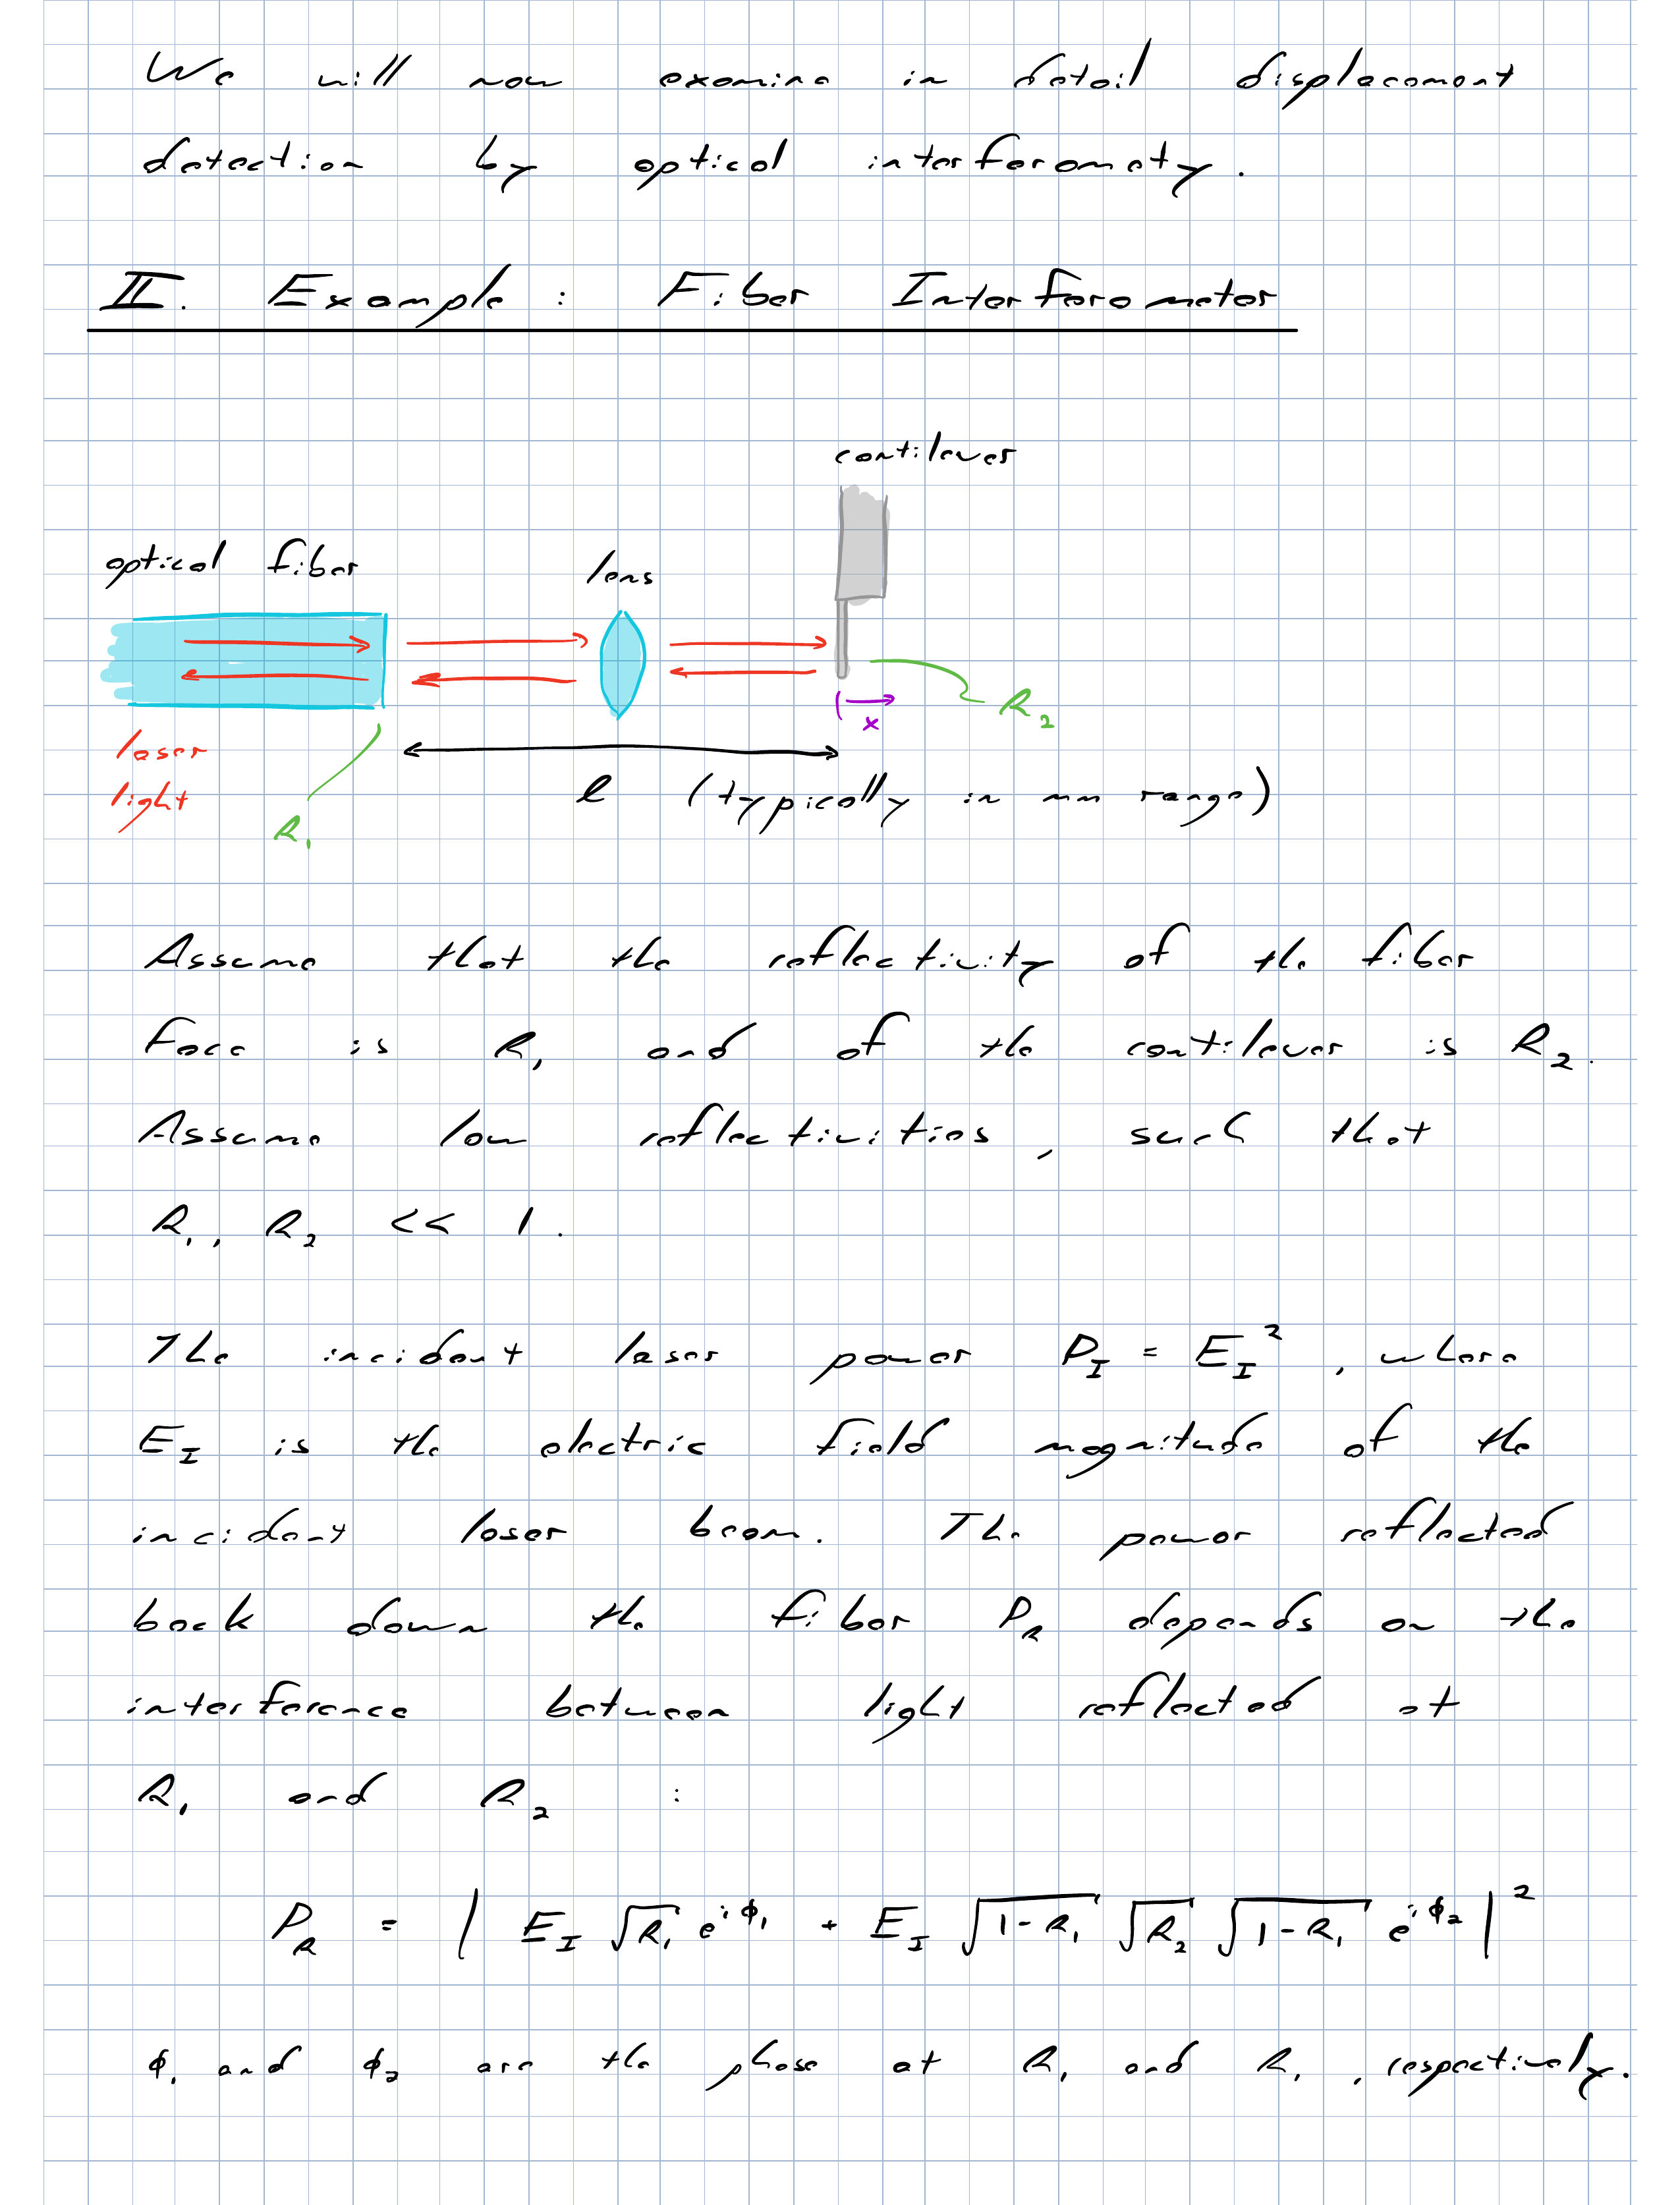 We will now examine in detail displacement
detection by optical interferomety.
II. Example : Fiber Interferometer
cantilever
optical fiber
lens
R₂
x
laser
light
R₁
l (typically in mm range)
Assume that the reflectivity of the fiber
face is R₁ and of the cantilever is R₂.
Assume low reflectivities, such that
R₁, R₂ << 1.
The incident laser power P_I = E_I², where
E_I is the electric field magnitude of the
incident laser beam. The power reflected
back down the fiber P_R depends on the
interference between light reflected at
R₁ and R₂ :
P_R = | E_I √R₁ e^{iϕ₁} + E_I √(1-R₁) √R₂ √(1-R₁) e^{iϕ₂} |²
ϕ₁ and ϕ₂ are the phase at R₁ and R₁, respectively.